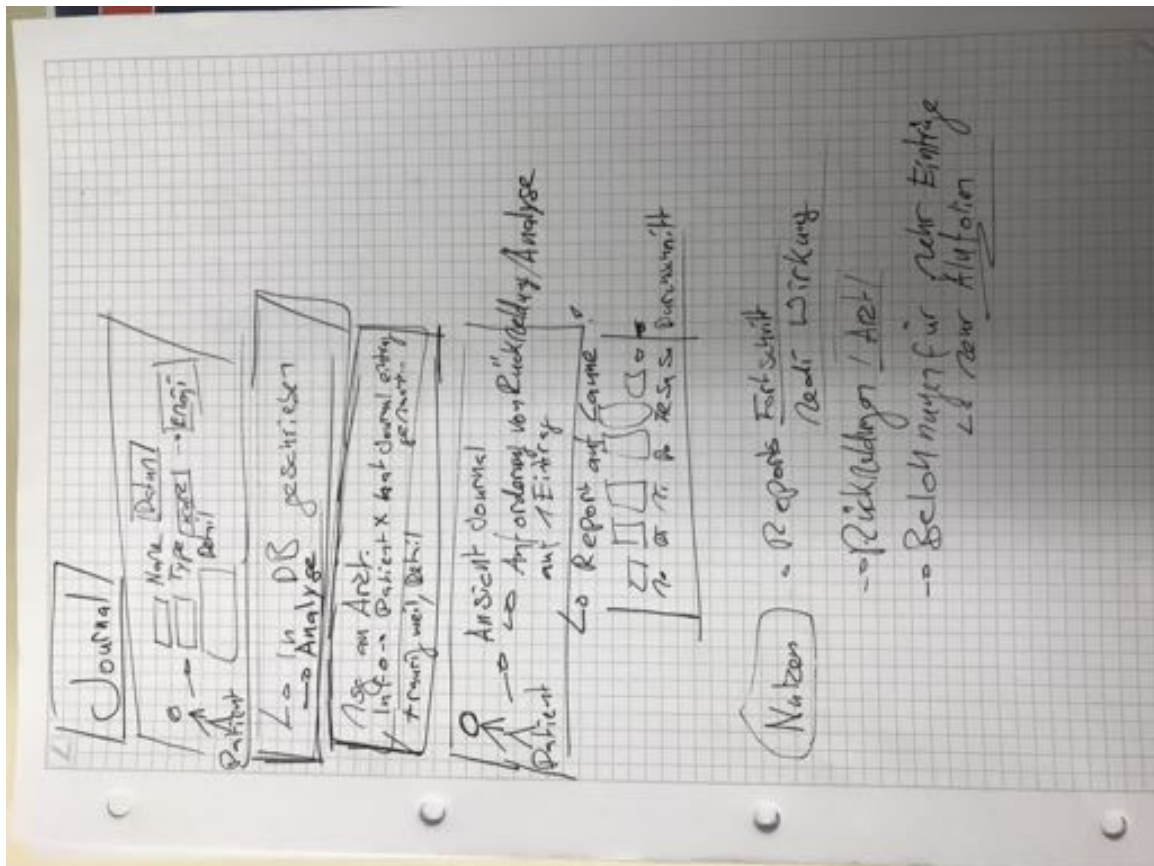 Journal
Name Datum
Type
Detail
Patient
In DB geschrieben
→ Analyse
an Arzt.
Info → Patient X hat Journal
traurig weil, Detail
Ansicht Journal
→ Anforderung von Rückmeldung/Analyse
auf 1 Eintrag
Patient
Report auf Laune
Mo Di Mi Do Fr Sa So Durchschnitt
Nutzen
Reports Fortschritt
Medi Wirkung
→ Rückmeldungen / Arzt
→ Belohnungen für mehr Einträge
mehr